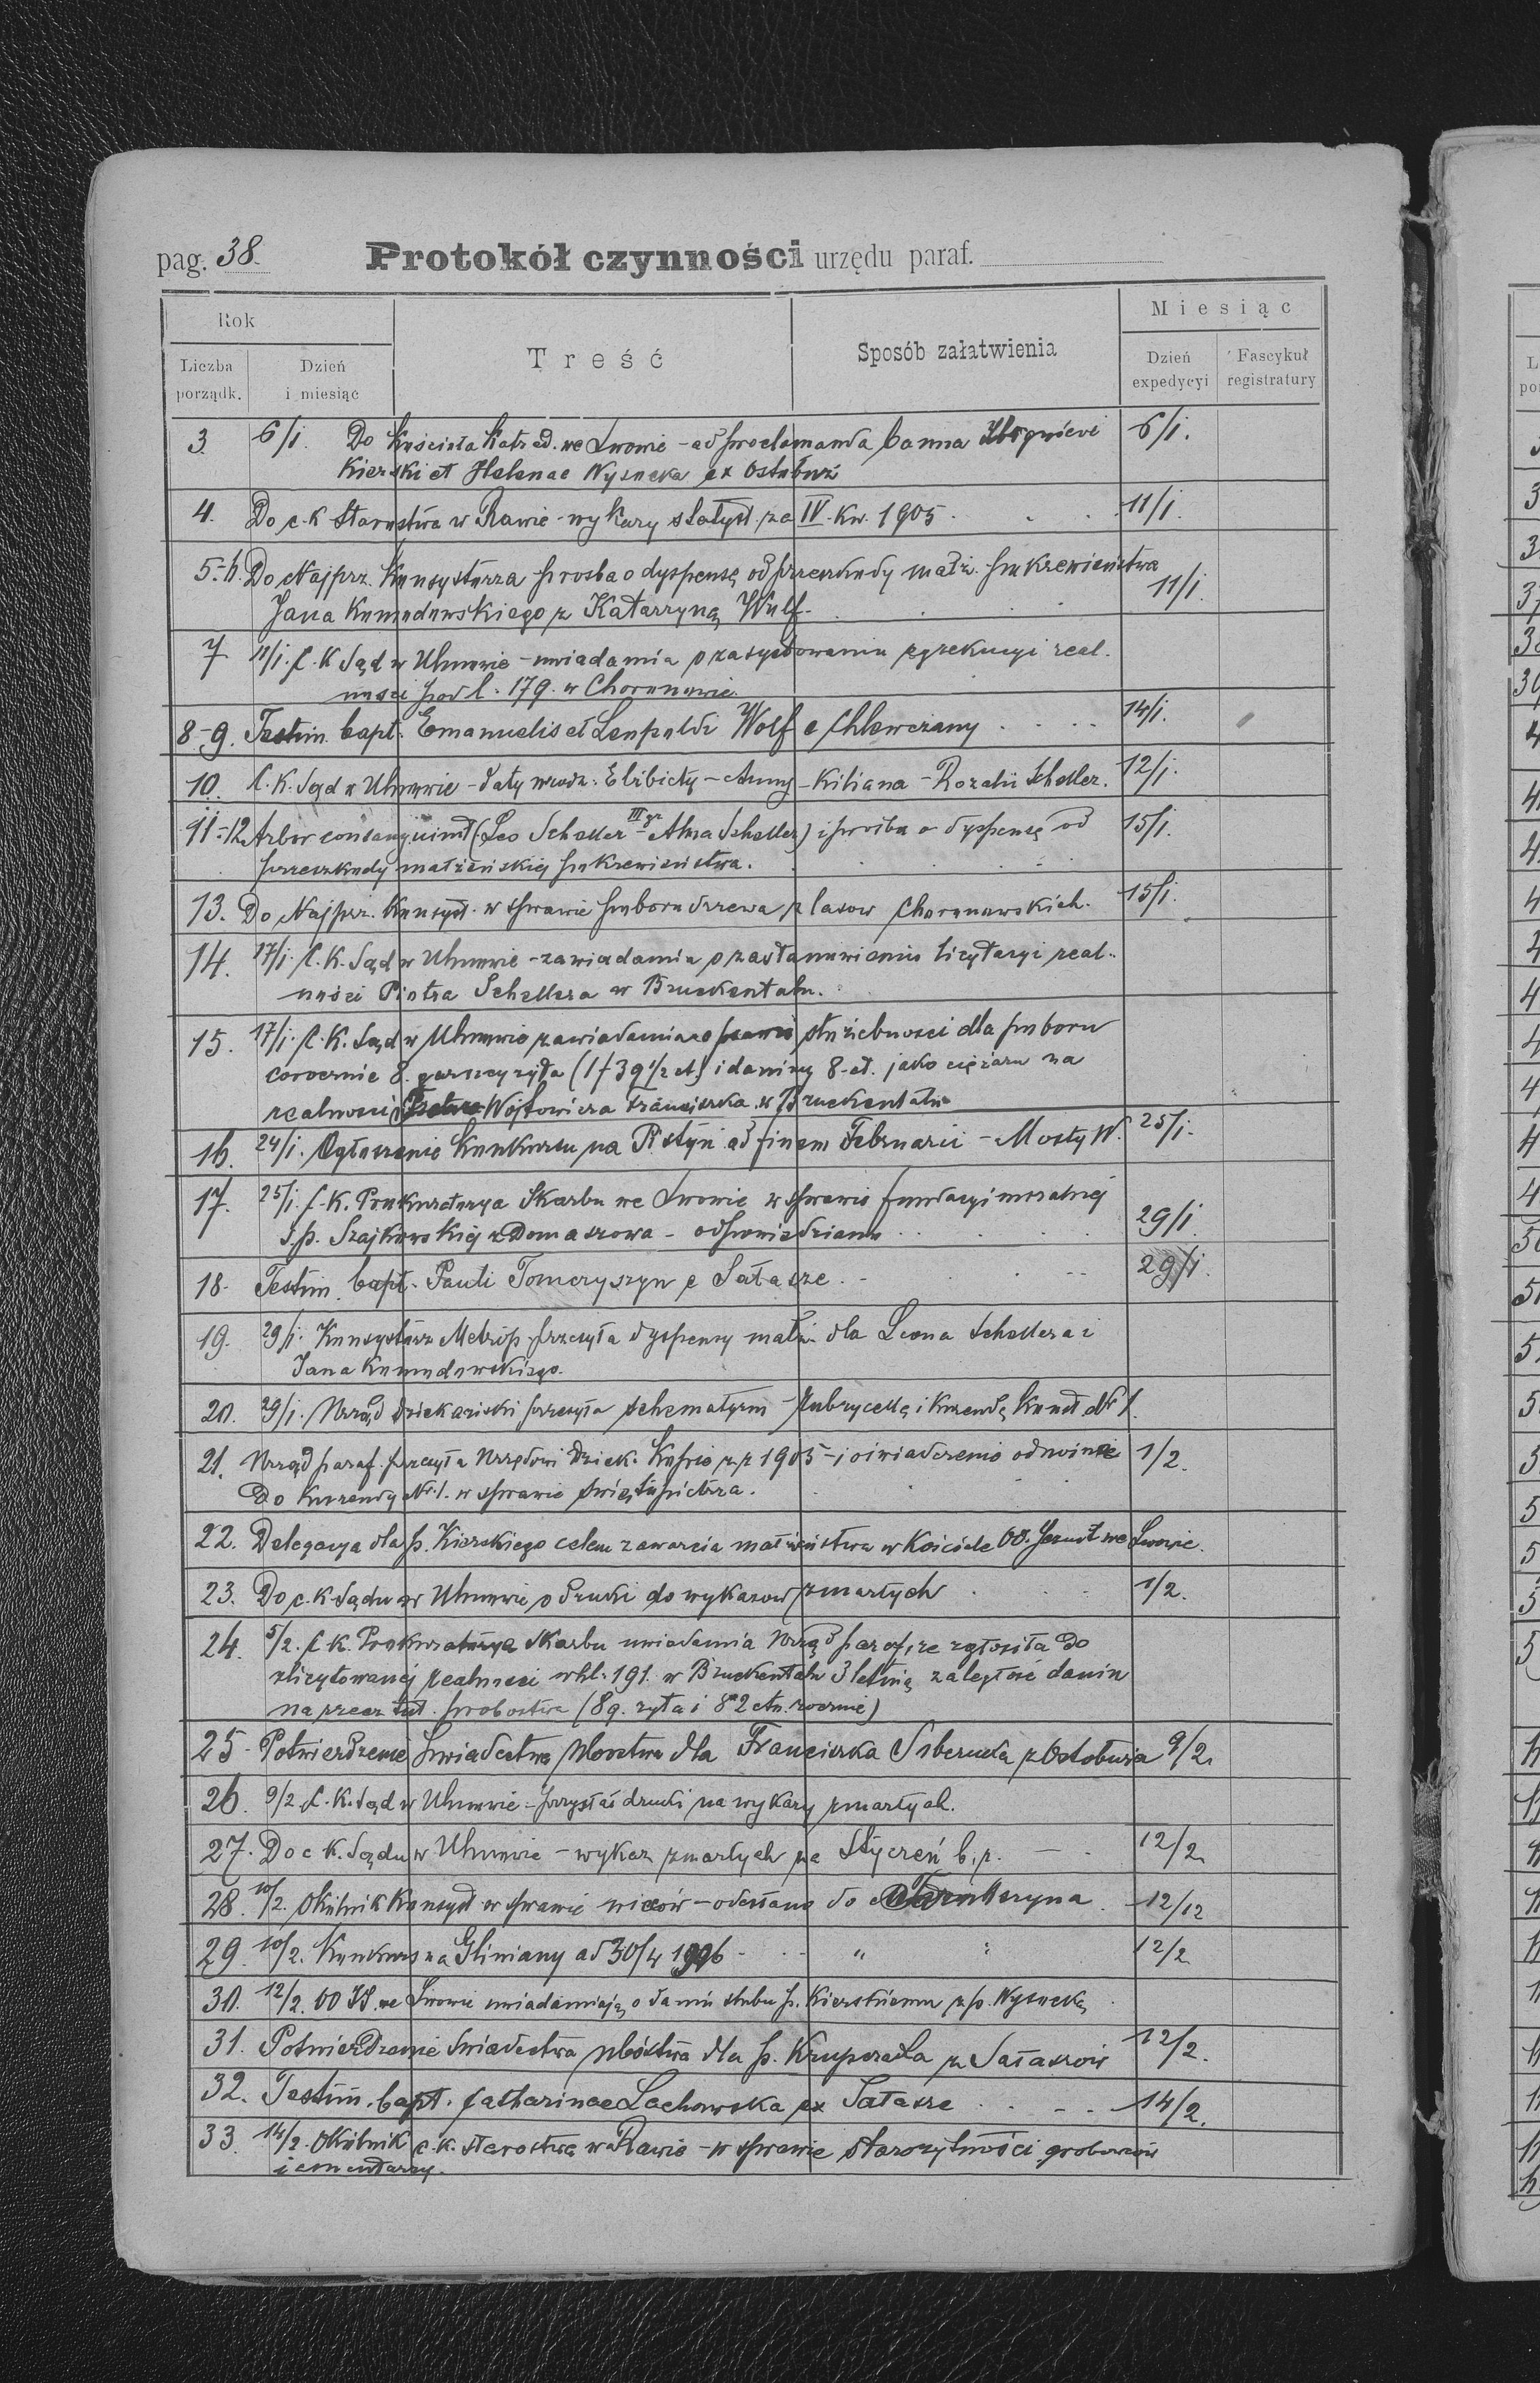 pag. 38.
Protokół czynności urzędu paraf.
Rok
Miesiąc
Liczba porządk.
Dzień i miesiąc
Treść
Sposób załatwienia
Dzień expedycyi
Fascykuł registratury
3 6/I. Do Kościoła Katred. we Lwowie - ad proclamanda banna 6/I.
Kierski et Helenae Wysocka ex Ostobuż
4. Do c.k Starostwa w Rawie - wykazy statyst. za IV. Kw. 1905 11/I.
5-6. Do Najprz. Konsystorza - prośba o dyspensę od przeszkody małż. pokrewieństwa
Jana Komodowskiego z Katarzyną Wolf. 11/I.
7 11/I. C.K Sąd w Uhnowie - uwiadamia o egzekucyi real-
ności pod l. 179. w Choronowie.
8-9. Testim. bapt. Emanuelis et Leopoldi Wolf e Chlewczany 14/I.
10. C.K. Sąd w Uhnowie - daty urodz. Elżbiety - Anny - Kiliana - Rozalii Scheller. 12/I.
11-12. Arbor consanguinit. (Leo Scheller III gr Scheller) i prośba o dyspensę od 15/I.
przeszkody małżeńskiej pokrewieństwa.
13. Do Najprz. Konsyst. w sprawie poboru drzewa z lasow Choronowskich. 15/I.
14. 17/I. C.K. Sąd w Uhnowie - zawiadamia o zastanowieniu licytacyi real-
ności Piotra Schellera w Bruckentalu.
15. 17/I. C.K. Sąd w Uhnowie zawiadamia o prawie służebności dla poboru
corocznie 8. garncy żyta (1 f 39 1/2 ct) i daniny 8-ct. jako ciężaru na
realności Wójtowicza Franciszka w Bruckentalu
16. 24/I. Ogłoszenie Konkursu na Pistyń ad finem Februarii - Mosty W. 25/I.
17. 25/I. C.K. Prokuratorya Skarbu we Lwowie w sprawie fundacyi mszalnej
ś.p. Szajkowskiej z Domaszowa - odpowiedziano 29/I
18. Testim. bapt. Pauli Tomczyszyn e Sałasze. 29/I.
19. 29/I. Konsystorz Metrop. przesyła dyspensy małż. dla Leona Schellera i
Jana Komodowskiego.
20. 29/I. Urząd dziekański przesyła schematyzm - Rubrycellę i kurendę Konst. Nr 1.
21. Urząd paraf. przesyła Urzędowi Dziek. Kopie z r 1905 - i oświadczenie odnośnie 1/2.
do Kurendy Nr. 1. w sprawie świętopietrza.
22. Delegacya dla p. Kierskiego celem zawarcia małżeństwa w Kościele OO. Jezuit we Lwowie.
23. Do c.k Sądu w Uhnowie o druki do wykazow zmarłych 1/2.
24. 5/2. C.K. Prokuratorya Skarbu uwiadamia Urząd paraf, że zgłosiła do
zlicytowanej realności whl. 191. w Bruckentalu 3 letnią zaległość danin
na rzecz tut. probostwa (8 g. żyta i 82 ctn. rocznie)
25. Potwierdzenie świadectwa ubostwa dla Franciszka z Ostobuża 9/2.
26. 9/2 C.K. Sąd w Uhnowie - przysłał druki na wykazy zmarłych.
27. Do c K. Sądu w Uhnowie - wykaz zmarłych za Styczeń b.r. 12/2
28. 10/2. Okólnik Konsyst w sprawie wieców - odesłano do 12/12
29. 10/2. Konkurs na Gliniany ad 30/4 1906 - " " 12/2
30. 12/2. OO JJ. we Lwowie uwiadamiają o daniu ślubu p. Kierskiemu z p. Wysocką
31. Potwierdzenie świadectwa ubóstwa dla p. z Sałaszów 12/2.
32. Testim. bapt. Catharinae Lachowska ex Sałasze 14/2.
33. 14/2. Okólnik c.k. Starostwa w Rawie - w sprawie starożytności grobowców
i cmentarzy.